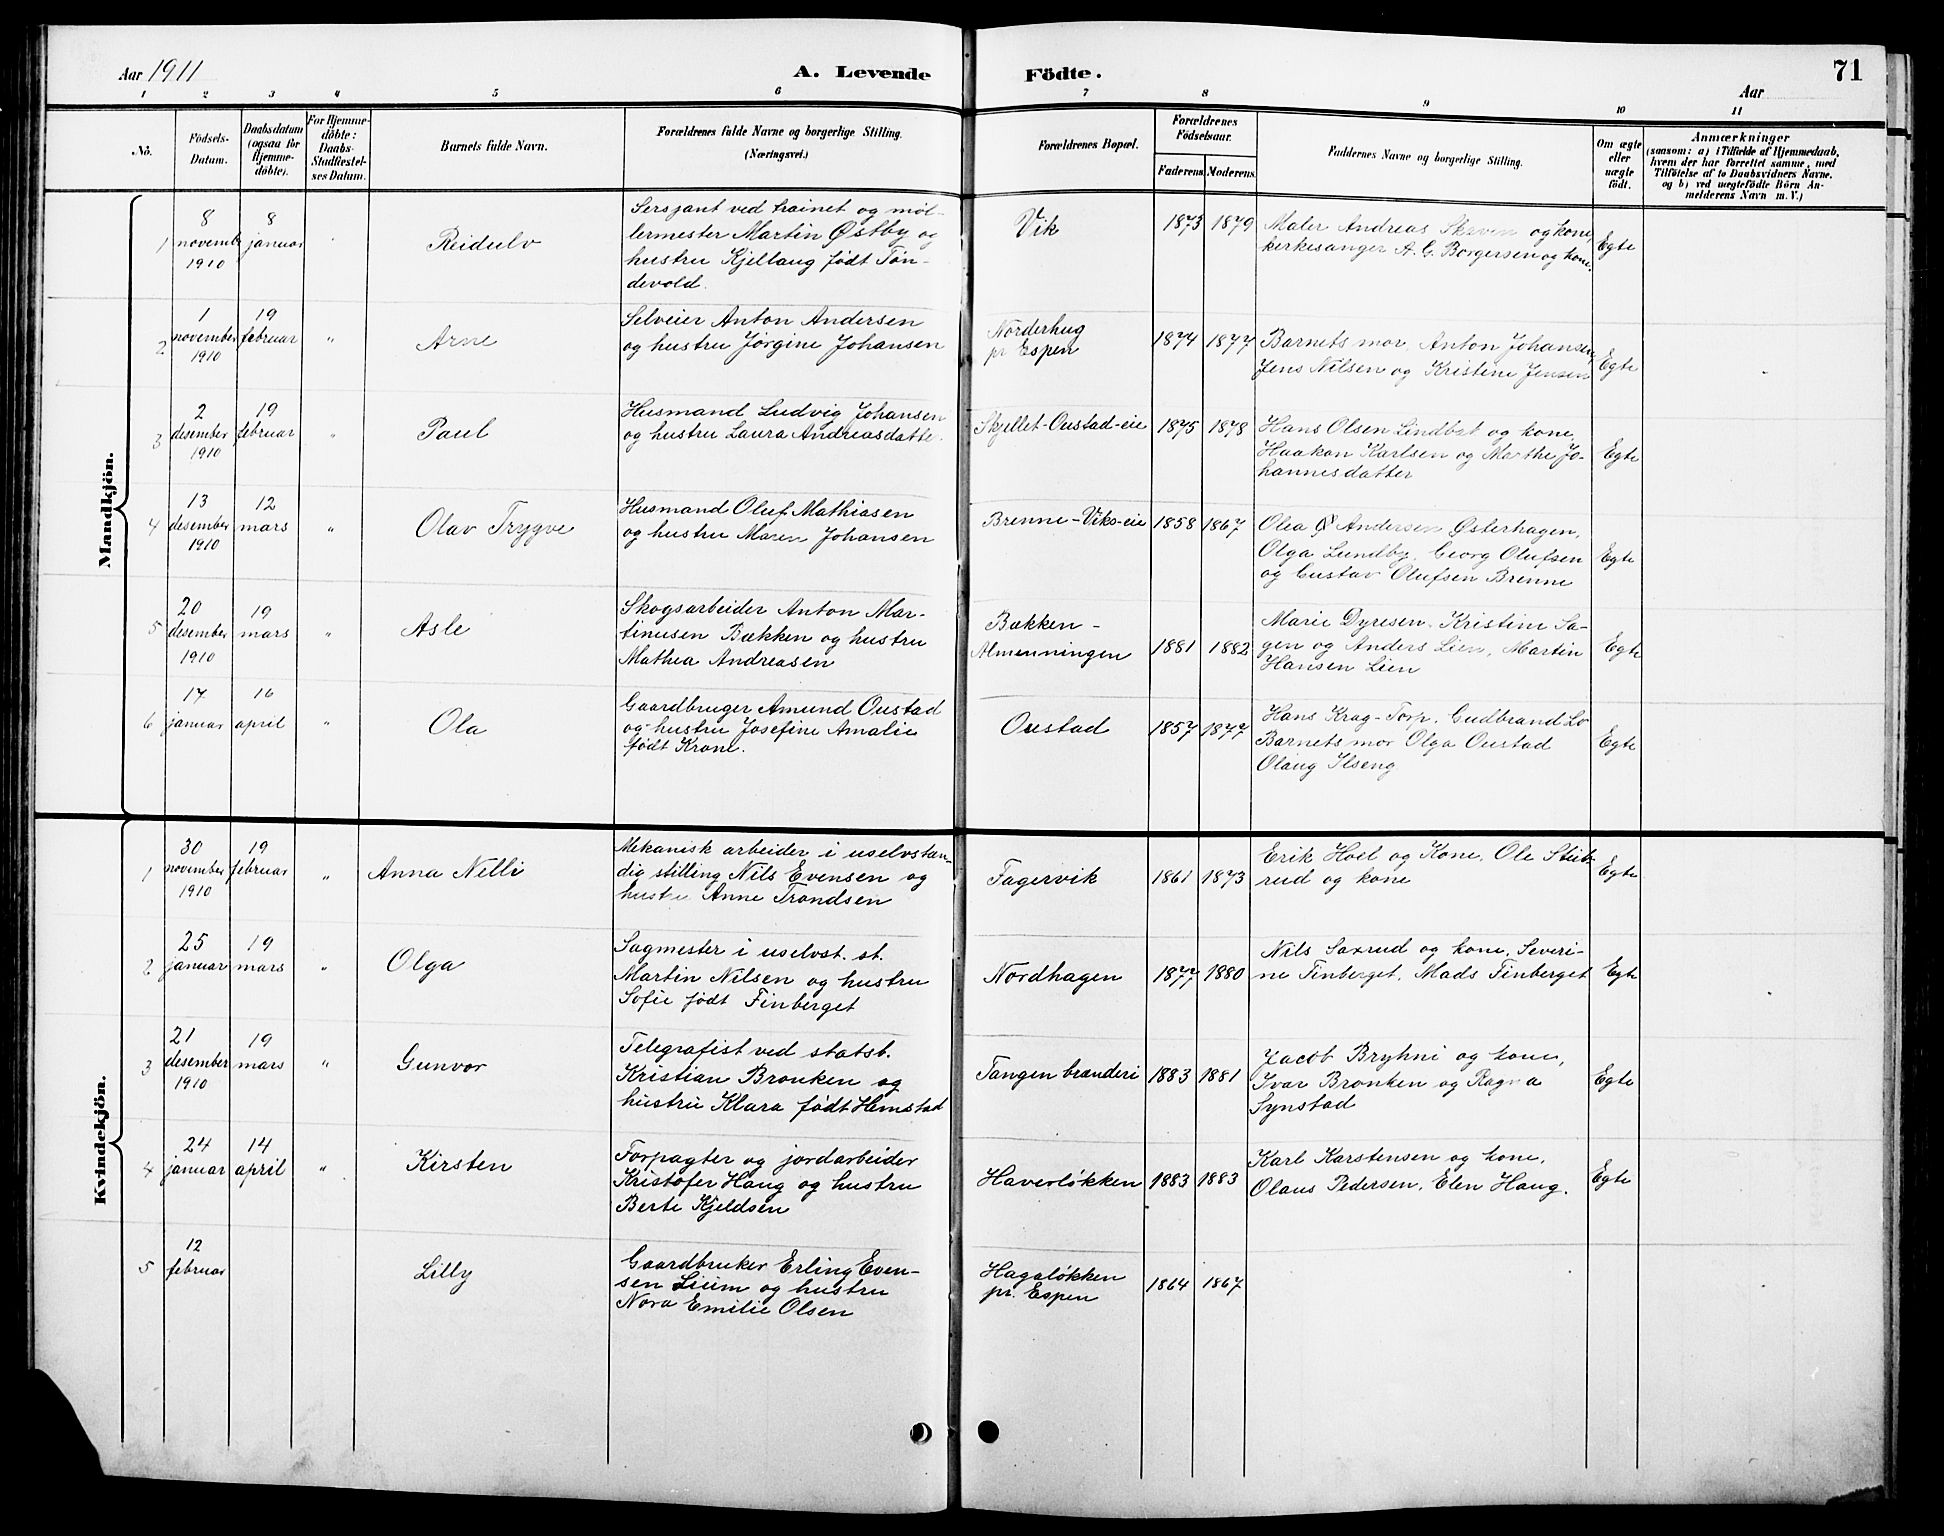 Aar 1911
A. Levende Födte.
71
Aar
1 2 3 4 5 6 7 8 9 10 11
Nö.
Födsels-
Datum.
Daabsdatum
(ogsaa for
Hjemme-
döbte).
For Hjemme-
döbte:
Daabs-
Stadfæstel-
ses Datum.
Barnets fulde Navn.
Forældrenes fulde Navne og borgerlige Stilling.
(Næringsvei.)
Forældrenes Bopæl.
Forældrenes
Födselsaar.
Faderens Moderens
Faddernes Navne og borgerlige Stilling.
Om ægte
eller
uægte
födt.
Anmærkninger
(saasom: a) i Tilfælde af Hjemmedaab,
hvem der har forrettet samme, med
Tilföielse af to Daabsvidners Navne.
og b) ved uægtefödte Börn An-
melderens Navn m. V.)
Mandkjön.
1
8
november
1910
8
januar
"
Reidulv
Sersjant ved trainet og møl-
lermester Martin Østby og
hustru Kjellaug født Tøn-
devold.
Vik
1873 1879
Maler Andreas Skrven og kone,
kirkesanger A. G. Borgersen og kone.
Egte
2
1
november
1910
19
februar
"
Arne
Selveier Anton Andersen
og hustru Jørgine Johansen
Norderhug
pr Espen
1874 1877
Barnets mor, Anton Johansen,
Jens Nilsen og Kristine Jensen
Egte
3
2
desember
1910
19
februar
"
Paul
Husmand Ludvig Johansen
og hustru Laura Andreasdatte.
Skjellet-Oustad-eie
1875 1878
Hans Olsen Lindbst og kone,
Haakon Karlsen og Marthe Jo-
hannesdatter
Egte
4
13
desember
1910
12
mars
"
Olav Trygve
Husmand Oluf Mathiasen
og hustru Maren Johansen
Brenne-Viks-eie
1858 1867
Olea Andersen Østerhagen,
Olga Lundby, Georg Olufsen
og Gustav Olufsen Brenne
Egte
5
20
desember
1910
19
mars
"
Asle
Skogsarbeider Anton Mar-
tinusen Bækken og hustru
Mathea Andreasen
Bækken-
Almenningen
1881 1882
Marie Dyresen, Kristine Sa-
gen og Anders Lien, Martin
Hansen Lien
Egte
6
17
januar
16
april
"
Ola
Gaardbruger Amund Oustad
og hustru Josefine Amalie
født Krone.
Oustad
1857 1877
Hans Krag-Torp, Gudbrand Lo
Barnets mor Olga Oustad
Olaug Ilseng
Egte
Kvindekjön.
1
30
november
1910
19
februar
"
Anna Nelli
Mekanisk arbeider i uselvstæn-
dig stilling Nils Evensen og
hustru Anne Trondsen
Fagervik
1861 1873
Erik Hoel og Kone, Ole Stub-
rud og kone
Egte
2
25
januar
19
mars
"
Olga
Sagmester i uselvst. st.
Martin Nilsen og hustru
Sofie født Finberget
Nordhagen
1877 1880
Nils Saxrud og kone, Severi-
ne Finberget, Mads Finberget
Egte
3
21
desember
1910
19
mars
"
Gunvor
Telegrafist ved statsb.
Kristian Bronken og
hustru Klara født Hemstad
Tangen brænderi
1883 1881
Jacob Bryhni og kone,
Ivar Bronken og Ragna
Synstad
Egte
4
24
januar
14
april
"
Kirsten
Forpagter og jordarbeider
Kristofer Haug og hustru
Berte Kjeldsen
Haverløkken
1883 1883
Karl Karstensen og kone,
Olaus Pedersen, Elen Haug.
Egte
5
12
februar
Lilly
Gaardbruker Erling Even-
sen Lium og hustru
Nora Emilie Olsen
Hageløkken
pr. Espen
1864 1867